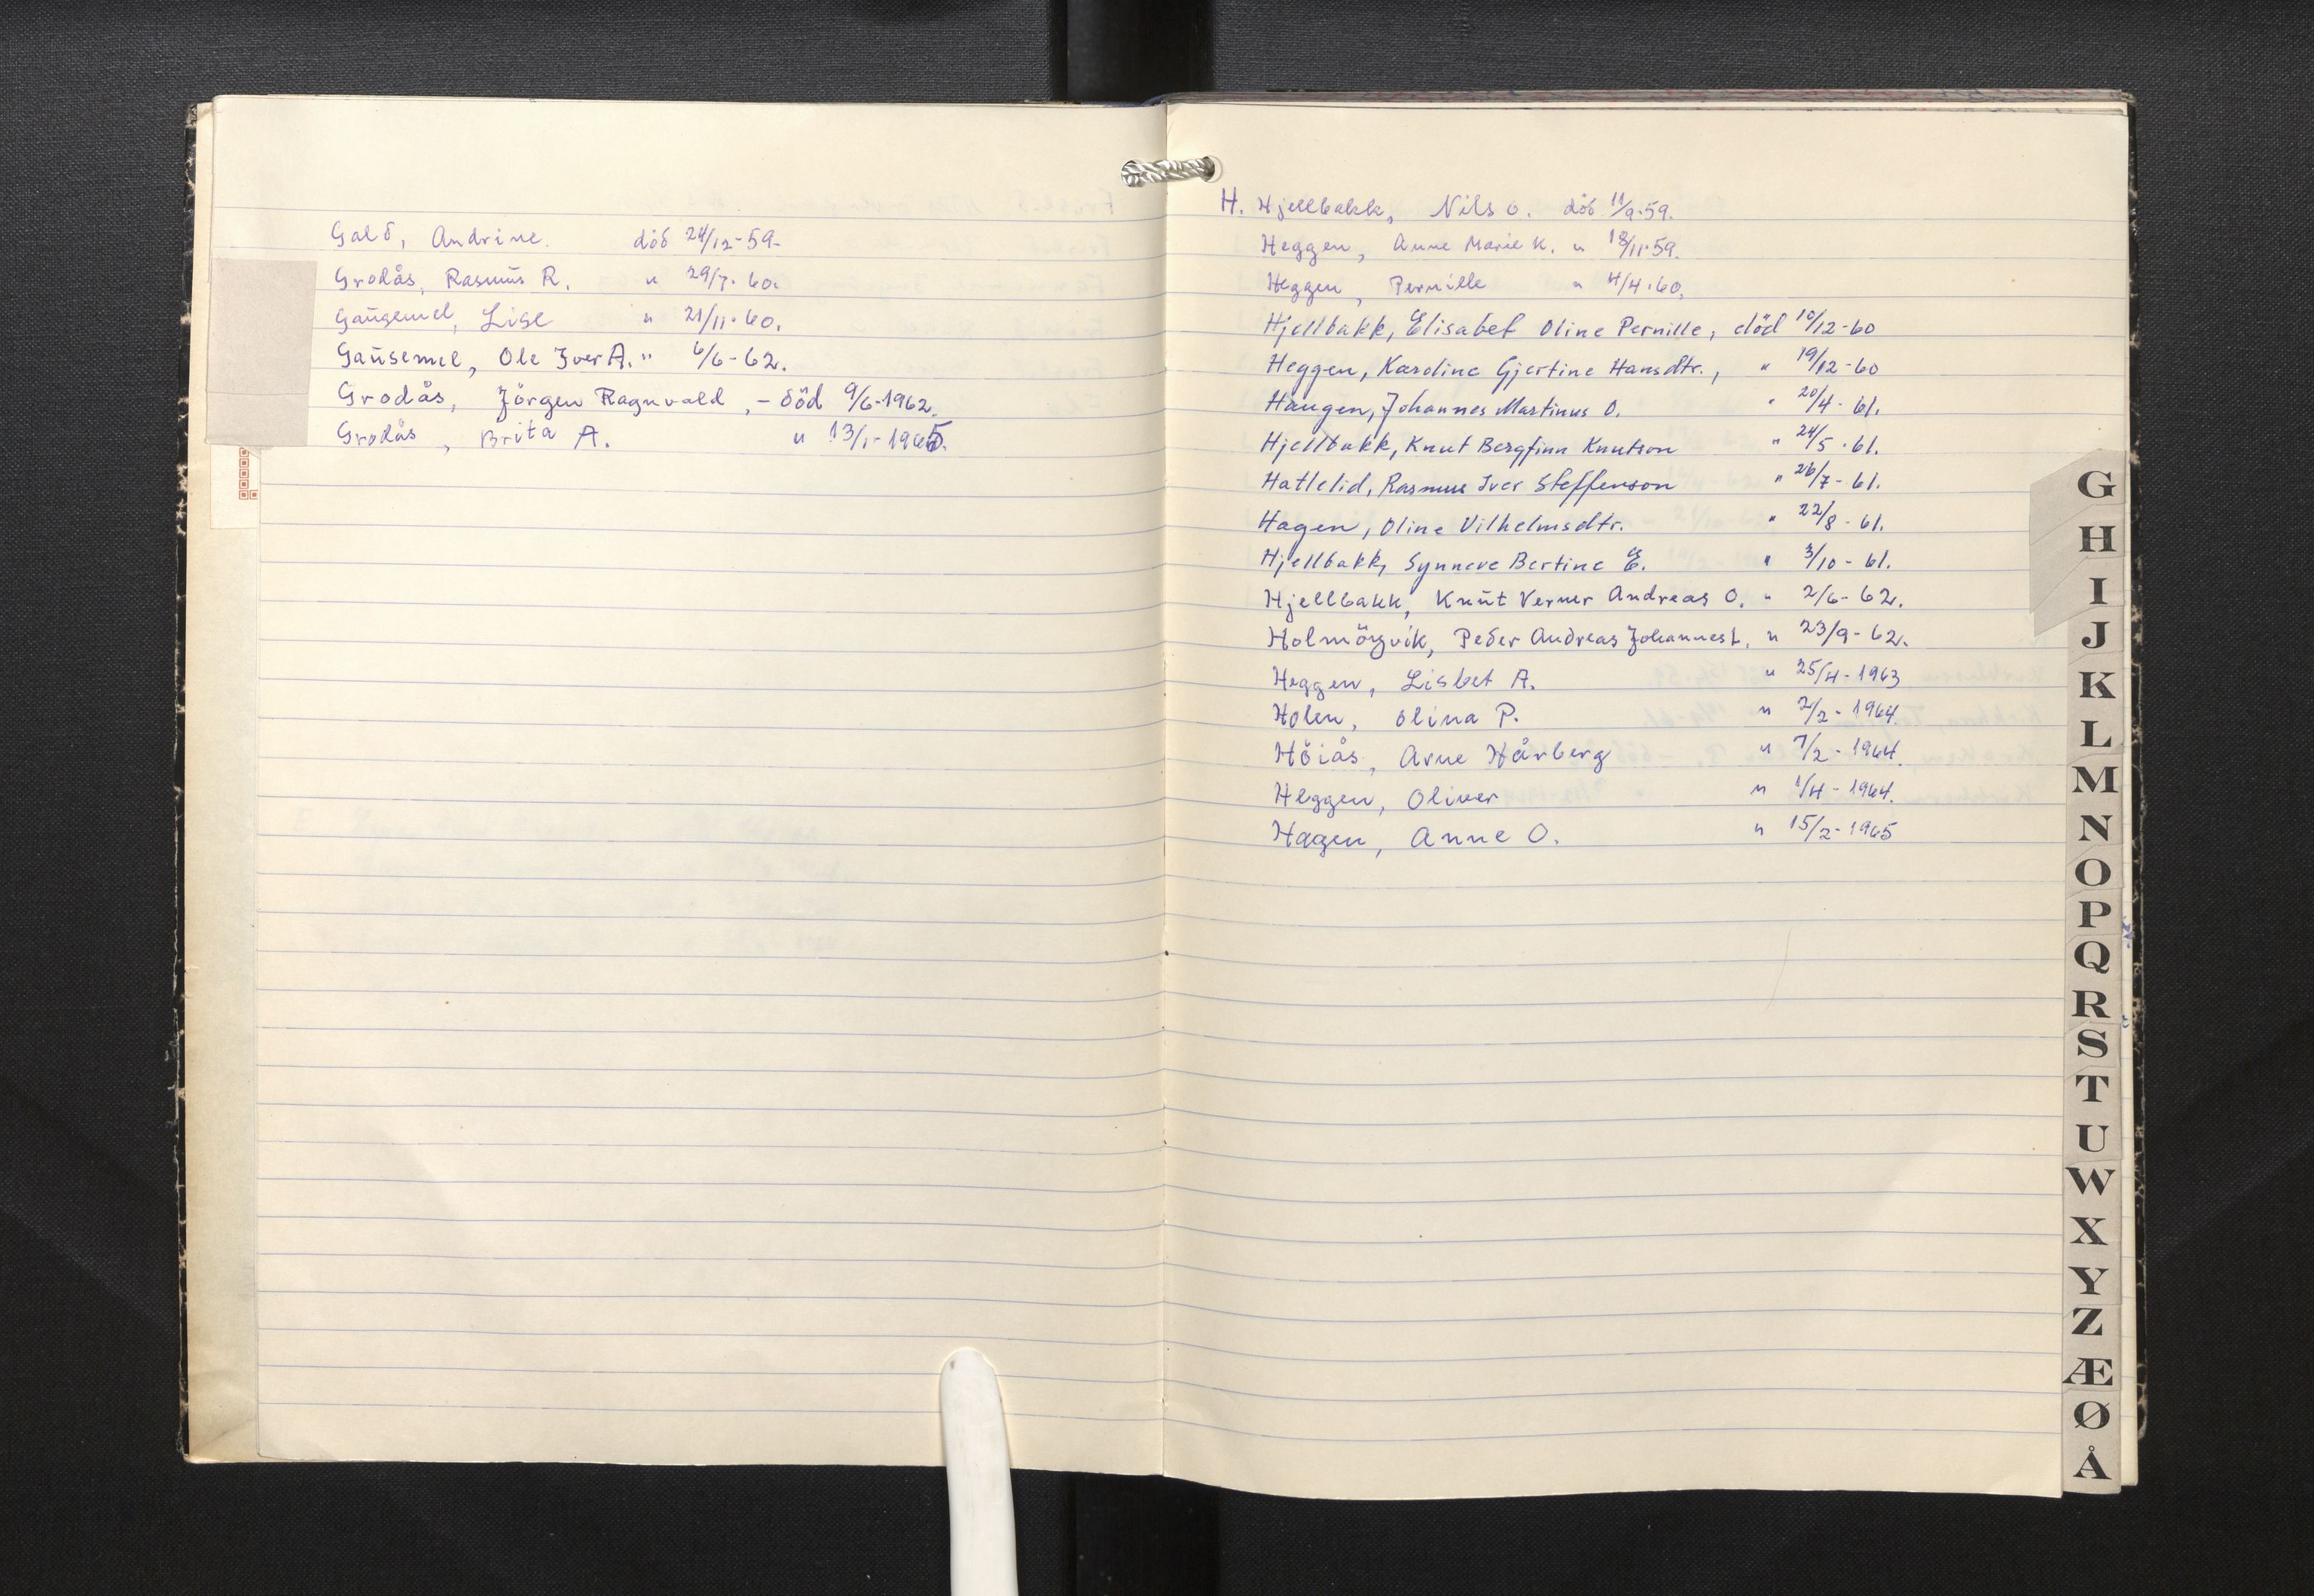 Gald, Andrine. död 24/12-59-
Grodås, Rasmus R. " 29/7-60.
Gausemel, Lise " 21/11-60.
Gausemel, Ole Iver A. " 6/6-62.
Grodås, Jörgen Ragnvald, - död 9/6-1962.
Grodås, Brita A. " 13/1-1965.
H. Hjellbakk, Nils O. död 11/9-59.
Heggen, Anne Marie K. " 18/11-59.
Heggen, Pernille " 4/4-60.
Hjellbakk, Elisabet Oline Pernille, död 10/12-60
Heggen, Karoline Gjertine Hansdtr., " 19/12-60
Haugen, Johannes Martinus O. " 20/4-61.
Hjellbakk, Knut Bergfinn Knutson " 24/5-61.
Hatlelid, Rasmus Iver Steffenson " 26/7-61.
Hagen, Oline Vilhelmsdtr. " 22/8-61.
Hjellbakk, Synneve Bertine E. " 3/10-61.
Hjellbakk, Knut Verner Andreas O. " 2/6-62.
Holmöyvik, Peder Andreas Johannes L. " 23/9-62.
Heggen, Lisbet A. " 25/4-1963
Holen, Olina P. " 2/2-1964.
Höiås, Arne Hårberg " 7/2-1964.
Heggen, Oliver " 1/4-1964.
Hagen, Anne O. " 15/2-1965
G
H
I
J
K
L
M
N
O
P
Q
R
S
T
U
W
X
Y
Z
Æ
Ø
Å